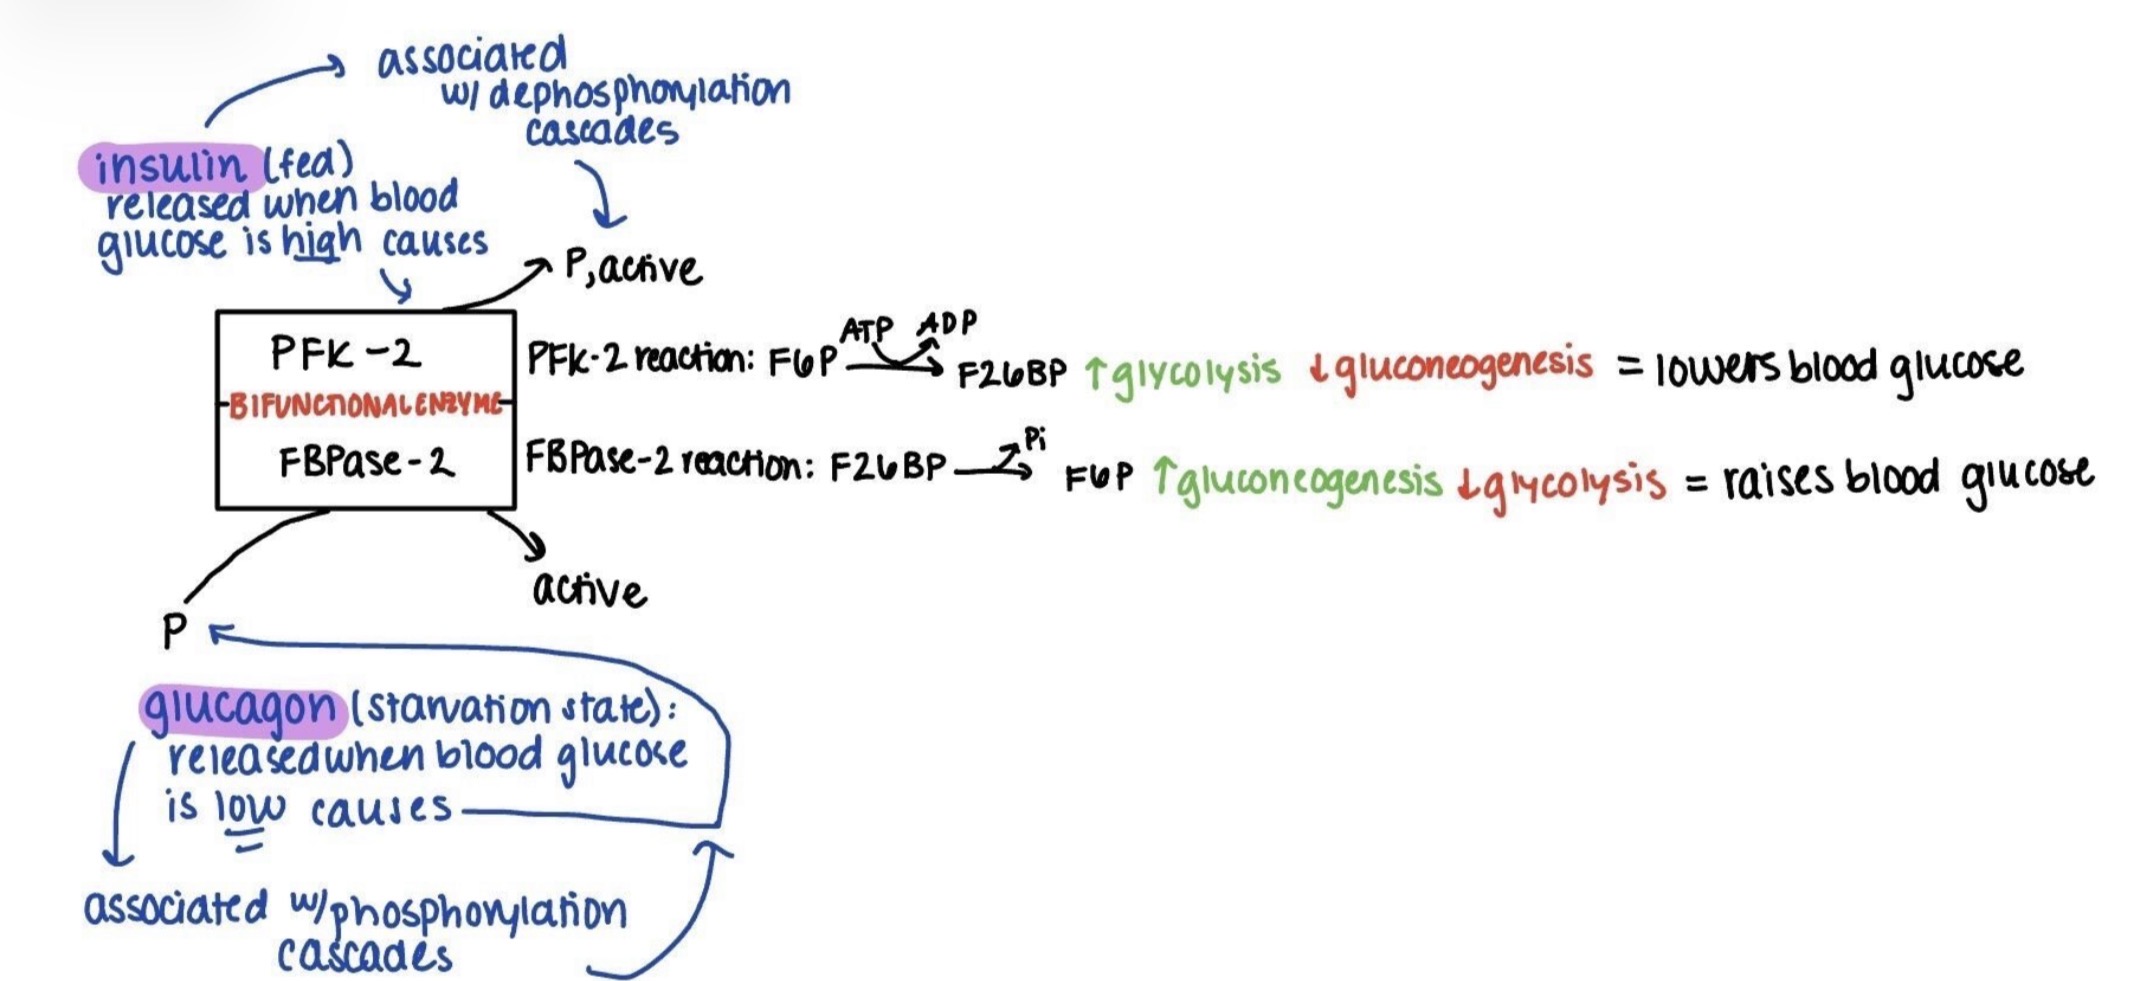 associated
w/ dephosphorylation
cascades
insulin (fed)
released when blood
glucose is high causes
P, active
PFK-2
BIFUNCTIONAL ENZYME
FBPase-2
ATP ADP
PFK-2 reaction: F6P F26BP ↑glycolysis ↓gluconeogenesis = lowers blood glucose
Pi
FBPase-2 reaction: F26BP F6P ↑gluconeogenesis ↓glycolysis = raises blood glucose
active
P
glucagon (starvation state):
released when blood glucose
is low causes
associated w/phosphorylation
cascades